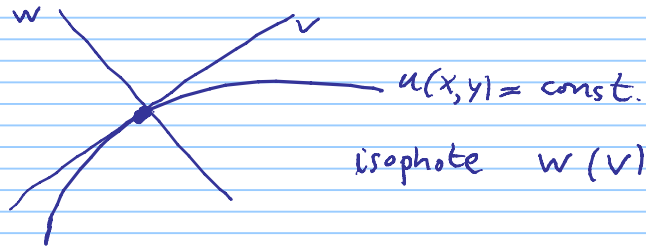 w v
u(x,y) = const.
isophote w(v)